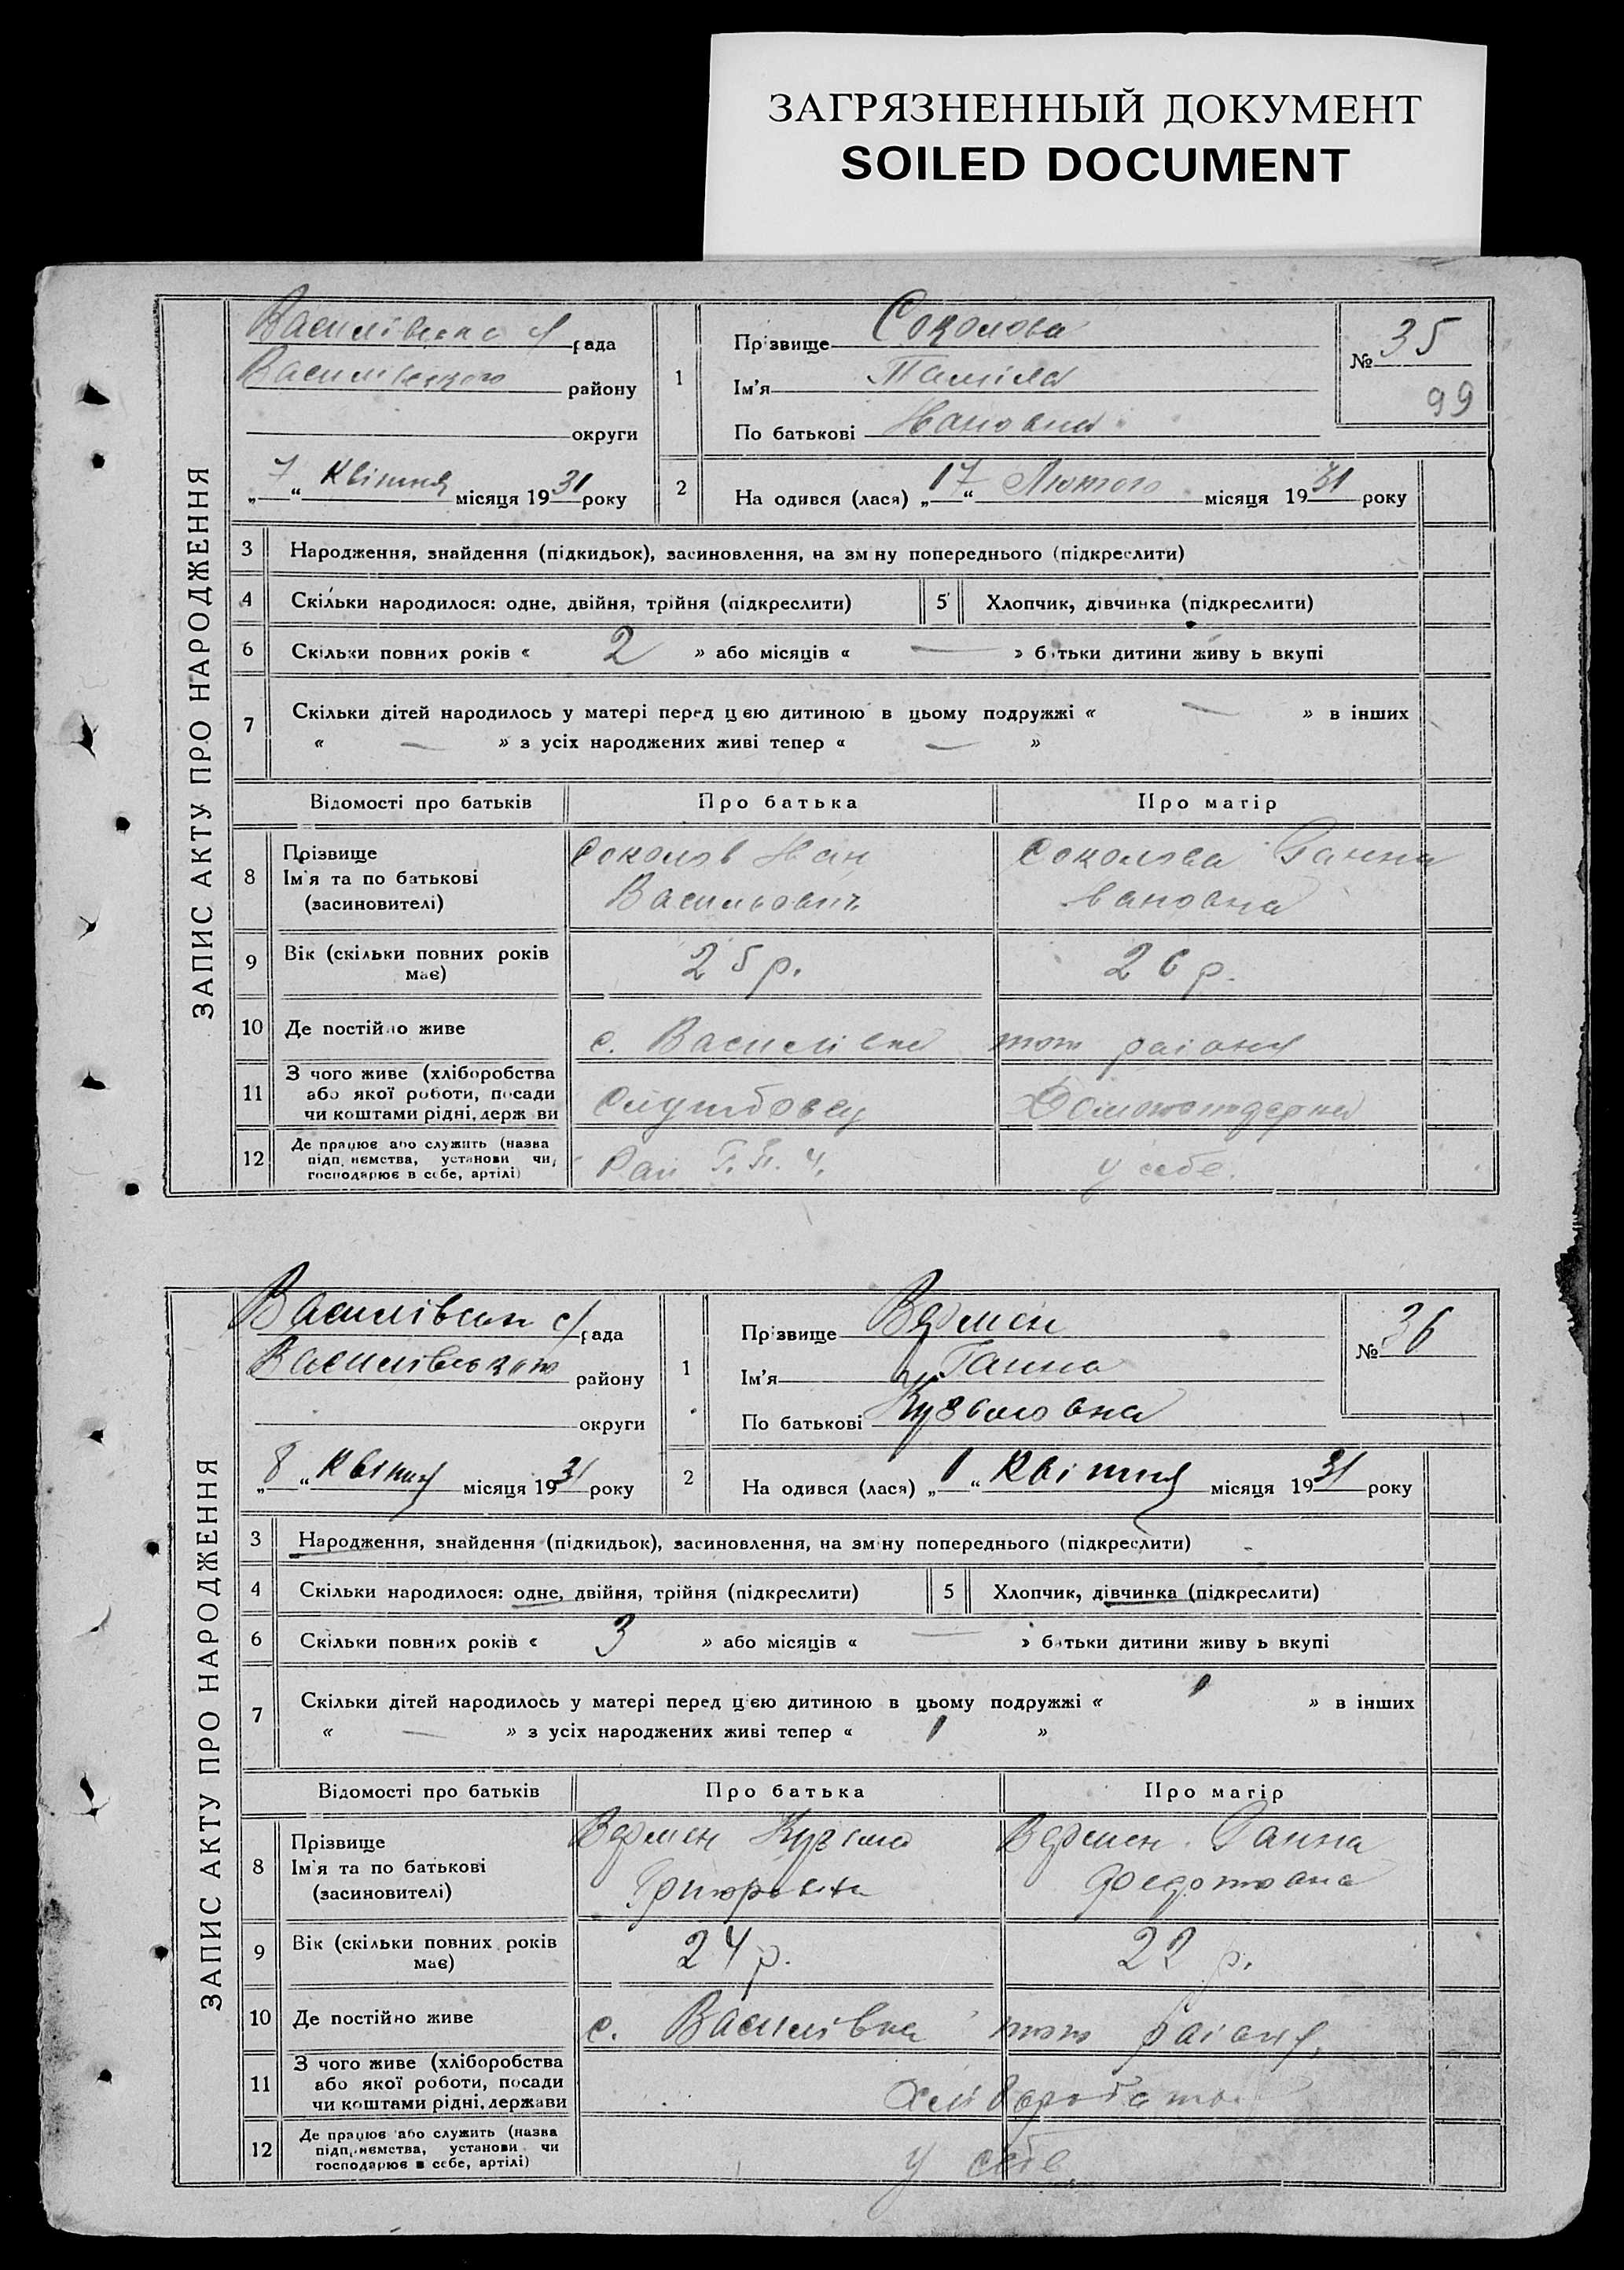 ЗАГРЯЗНЕННЫЙ ДОКУМЕНТ
SOILED DOCUMENT
ЗАПИС АКТУ ПРО НАРОДЖЕННЯ
с/рада
району
округи
„7“ Квітня місяця 1931 року
1
Прізвище Соколова
Ім'я
По батькові Ивановна
№ 35
99
2
На одився (лася) „17“ Лютого місяця 1931 року
3 Народження, знайдення (підкидьок), засиновлення, на зм ну попереднього (підкреслити)
4 Скільки народилося: одне, двійня, трійня (підкреслити) 5 Хлопчик, дівчинка (підкреслити)
6 Скільки повних років « 2 » або місяців « — » б тьки дитини живу ь вкупі
7 Скільки дітей народилось у матері перед цєю дитиною в цьому подружжі « — » в інших
« — » з усіх народжених живі тепер « — »
Відомості про батьків Про батька Про матір
8 Прізвище
Ім'я та по батькові
(засиновителі)
Соколов Иван
Васильович
Соколова Ганна
Ивановна
9 Вік (скільки повних років має) 25 р. 26 р.
10 Де постійно живе с. Василівка того раіону
11 З чого живе (хліборобства
або якої роботи, посади
чи коштами рідні, держ ви
12 Де працює або служить (назва
підп иємства, установи чи,
господарює в себе, артілі)
Рай
у себе.
ЗАПИС АКТУ ПРО НАРОДЖЕННЯ
Василівськ с/рада
Василівського району
округи
„8“ Квітня місяця 1931 року
1
Прізвище
Ім'я Ганна
По батькові Кузьмовна
№ 36
2
На одився (лася) „1“ Квітня місяця 1931 року
3 Народження, знайдення (підкидьок), засиновлення, на зм ну попереднього (підкреслити)
4 Скільки народилося: одне, двійня, трійня (підкреслити) 5 Хлопчик, дівчинка (підкреслити)
6 Скільки повних років « 3 » або місяців « — » б тьки дитини живу ь вкупі
7 Скільки дітей народилось у матері перед цєю дитиною в цьому подружжі « 1 » в інших
« — » з усіх народжених живі тепер « 1 »
Відомості про батьків Про батька Про матір
8 Прізвище
Ім'я та по батькові
(засиновителі)
Кузьма
Григорович
Ганна
Федотовна
9 Вік (скільки повних років має) 24 р. 22 р.
10 Де постійно живе с. Василівка того раіону,
11 З чого живе (хліборобства
або якої роботи, посади
чи коштами рідні, держави
Хліборобство.
12 Де працює або служить (назва
підп иємства, установи чи
господарює в себе, артілі)
у себе.